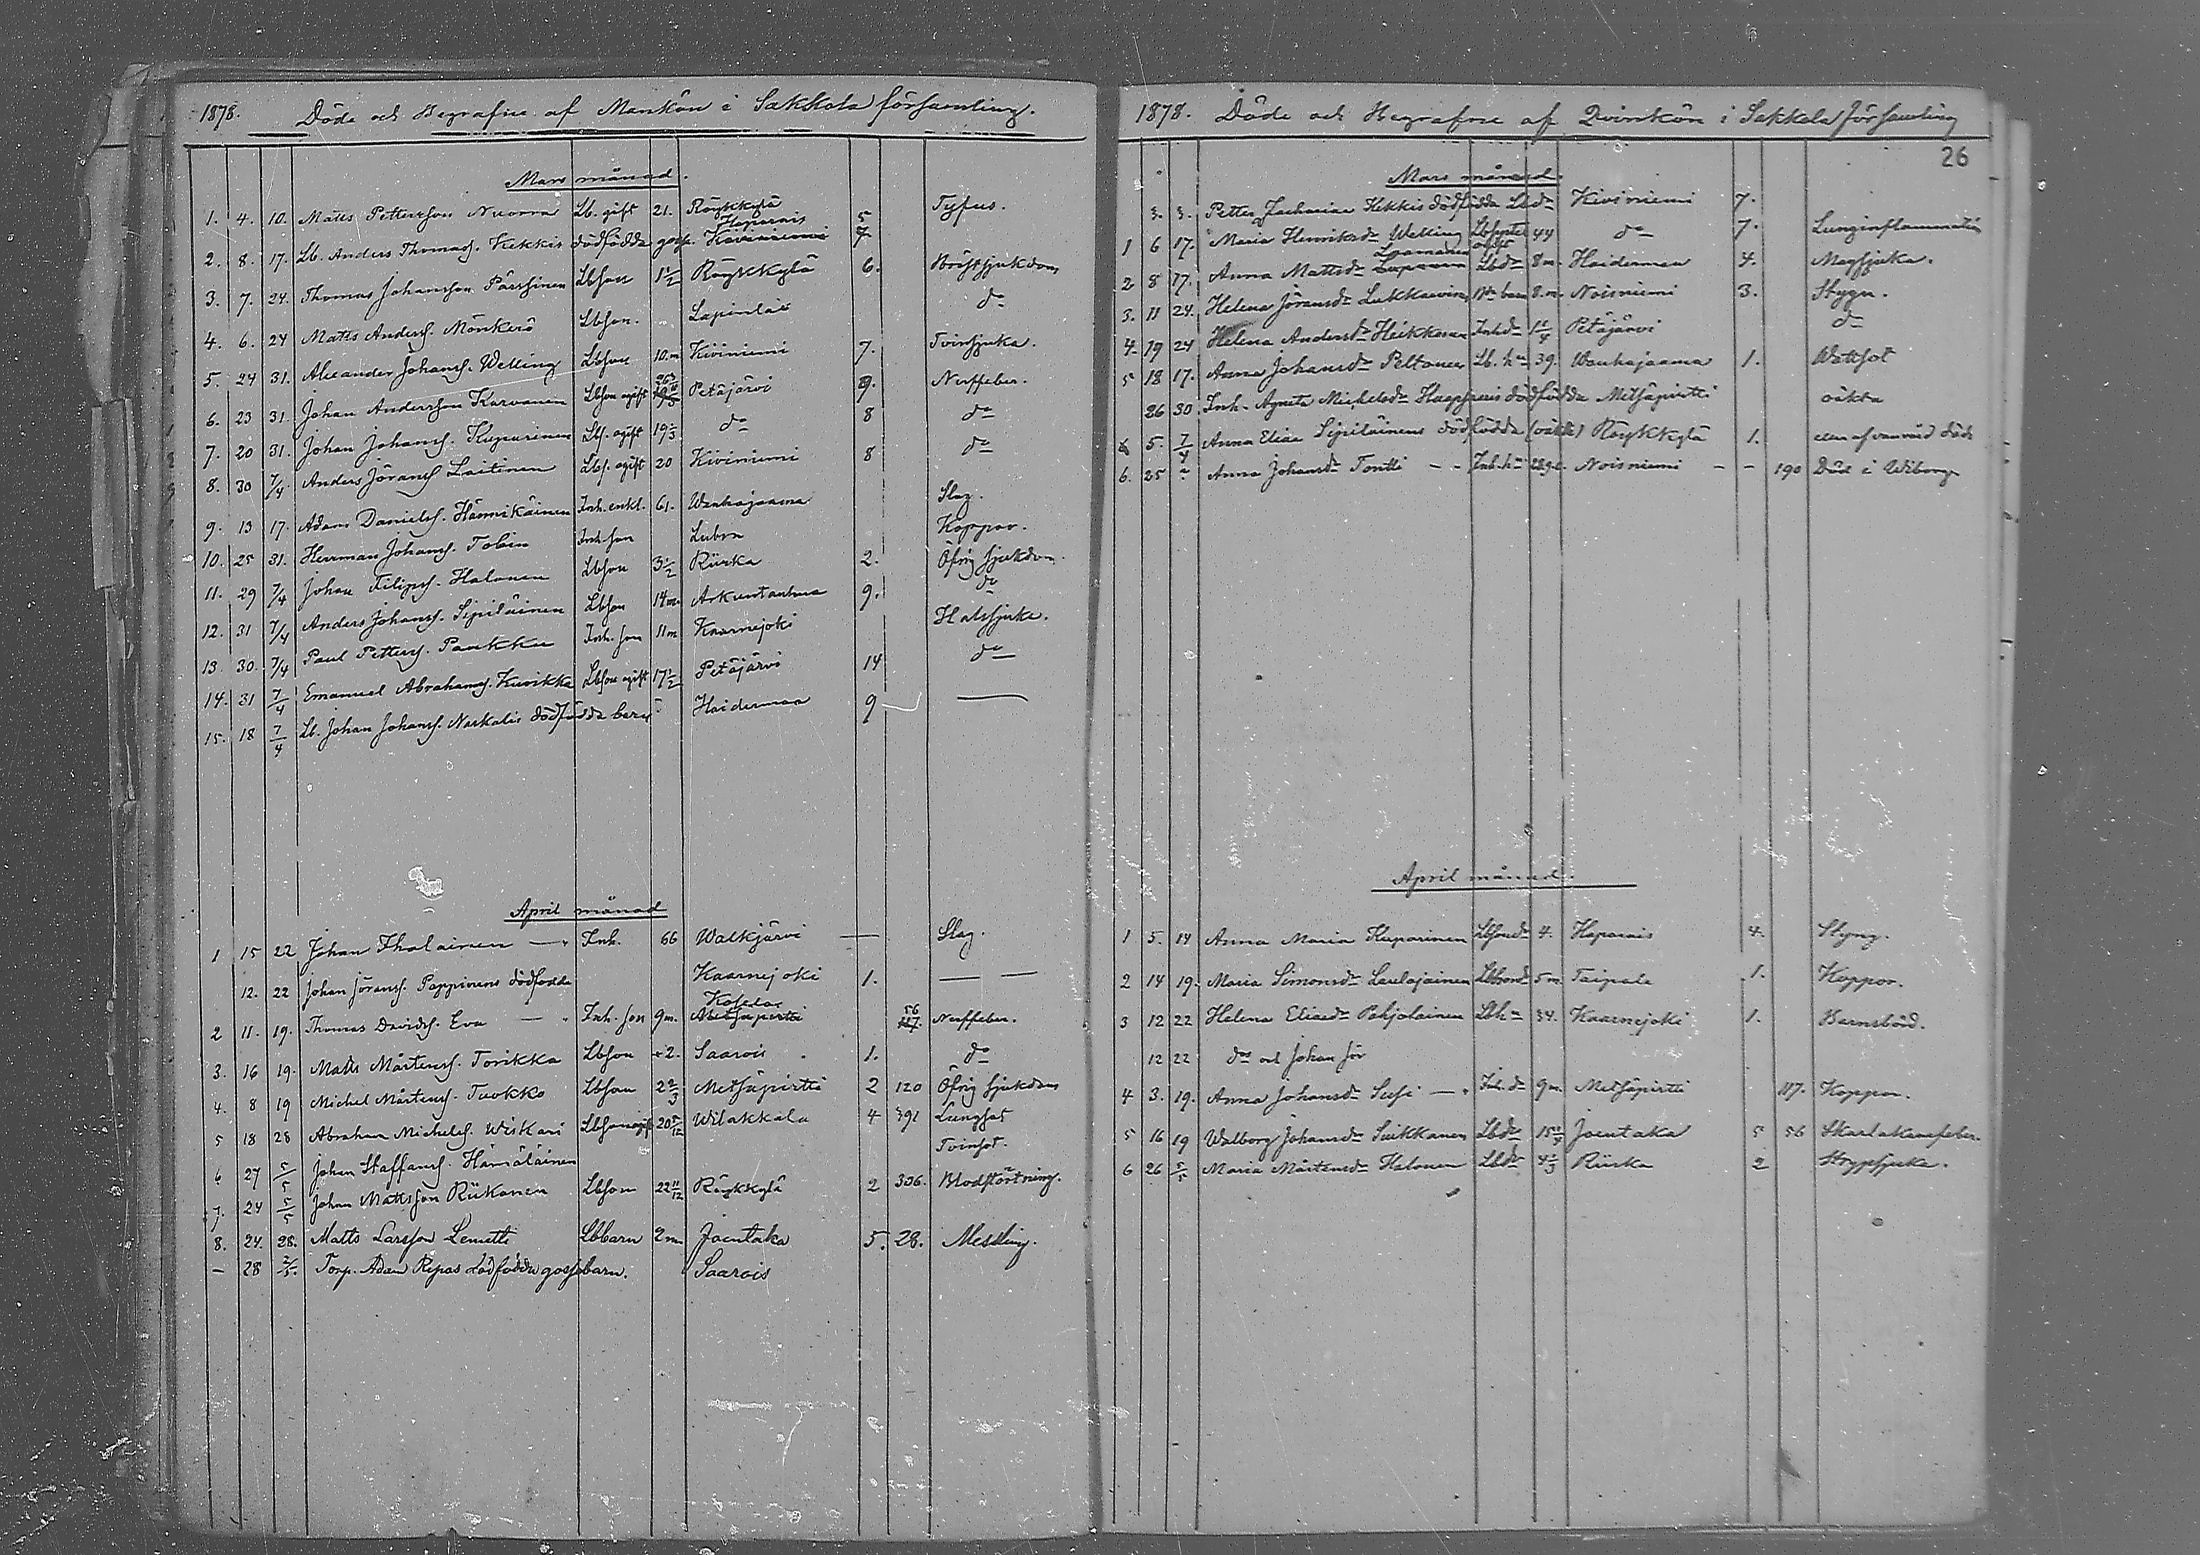 1878. Döde och Begrafne af Mankön i Sakkola församling.
Mars månad.
1. 4. 10. Matts Pettersson Nuora Lb. gift 21. Röykkylä 5 Tyfus.
Haparais
2. 8. 17. Lb. Anders Thomass. Kekkis dödfödda goss. Kiviniemi 7
3. 7. 24. Thomas Johansson Pärssinen Lbson 1 1/2 Röykkylä 6. Bröstsjukdom
4. 6. 24 Matts Anderss. Mönkerö Lbson. Lapinlaks do
5. 24 31. Alexander Johanss. Welling Lbson 10.m Kiviniemi 7. Tvinsjuka.
6. 23 31. Johan Andersson Karvanen Lbson ogift Petäjärvi 9. Nerffeber.
7. 20 31. Johan Johanss. Kuparinen Lbs. ogift 19 1/3 do 8 do
8. 30 7/4 Anders Jöranss. Laitinen Lbs. ogift 20 Kiviniemi 8 do
9. 13 17. Adam Danielss. Hännikäinen Inh. enkl. 61. Wanhajaama Slag.
10. 25 31. Herrman Johanss. Tobin Inh. son Lubra Koppor.
11. 29 7/4 Johan Filipss. Halonen Lbson 3 1/2 Riiska 2. Öfrig sjukdom.
12. 31 7/4 Anders Johanss. Sipiläinen Lbson 14m. Arkuntanhua 9. do
13. 30. 7/4 Paul Petterss. Paukku Inh. son 11m Kaarnejoki Halssjuka.
14. 31 7/4 Emanuel Abrahamss. Kuvikka Lbson ogift 17 1/2 Petäjärvi 14 do
15. 18 7/4 Lb. Johan Johanss. Naskalis dödfödda barn Haidermaa 9 —
April månad
1 15 22 Johan Ihalainen — Inh. 66 Walkjärvi — Slag.
12. 22 Johan Jöranss. Pappinens dödfödda Kaarnejoki 1. — —
Kosela
2 11. 19. Thomas Davidss. Eva — Inh. son 9m. Metsäpirtti 56 117. Nerffeber.
3. 16 19. Matts Mårtenss. Torikka Lbson 2. Saarois 1. do
4. 8 19 Michel Mårtenss. Tuokko Lbson 2 2/3 Metsäpirtti 2 120 Öfrig sjukdom
5 18 28 Abraham Michelss. Wiskari Lbson ogift 20 5/12 Wilakkala 4 391 Lungsot
6 27 5/5 Johan Staffanss. Hämäläinen Tvinsot.
7. 24 5/5 Johan Mattsson Riikonen Lbson 22 11/12 Röykkylä 2 306. Blodstörtning.
8. 24. 28. Matts Larsson Lemetti Lbbarn 2m Joentaka 5. 28. Messling.
— 28 Torp. Adam Repos dödfödda gossebarn. Saarois
1878. Döde och Begrafne af Qvinkön i Sakkola församling
26
Mars månad.
3. 3. Petter Zacharias Kekkis dödfödda Kiviniemi 7.
1 6 17. Maria Henriksdr Welling ogift 44 do 7. Lunginflammation
2 8 17. Anna Mattsdr Loananen Lbdr 8m. Haidermaa 4. Magsjuka.
3. 11 24. Helena Jöransdr Lukkarinen barn 8.m. Noisniemi 3. Stygn.
4. 19 24 Helena Andersdr Heikkonen Inhdr Petäjärvi do
5 18 17. Anna Johansdr Peltonen Lb. hu 39. Wanhajaama 1. Wattsot
26 30 Inh. Agneta Michelsdr dödfödda Metsäpirtti oäkta
6 5. 7/4 Anna Elias Sipiläinens dödfödda (oäkta) Röykkylä 1. utan af vanvård död
6. 25 " Anna Johansdr Tontti — Inh. hu Noisniemi — — 190 Död i Wiborg.
April månad.
1 5. 14 Anna Maria Kuparinen 4. Haparais 4. Styng.
2 14 19. Maria Simonsdr Laulajainen 5m Taipale 1. Koppor.
3 12 22 Helena Eliaedr Pohjolainen Lbhu 34. Kaarnejoki 1. Barnsbörd.
12 22 och Johan Jör
4 3. 19. Anna Johansdr Susi — Inh. dr 9m. Metsäpirtti 117. Koppor.
5 16 19 Walborg Johansdr Suikkanen Lbdr Joentaka 5 56 Skarlakansfeber.
6 26 5/5 Maria Mårtensdr Halonen Lbdr 4 1/3 Riiska 2 Strypsjuka.